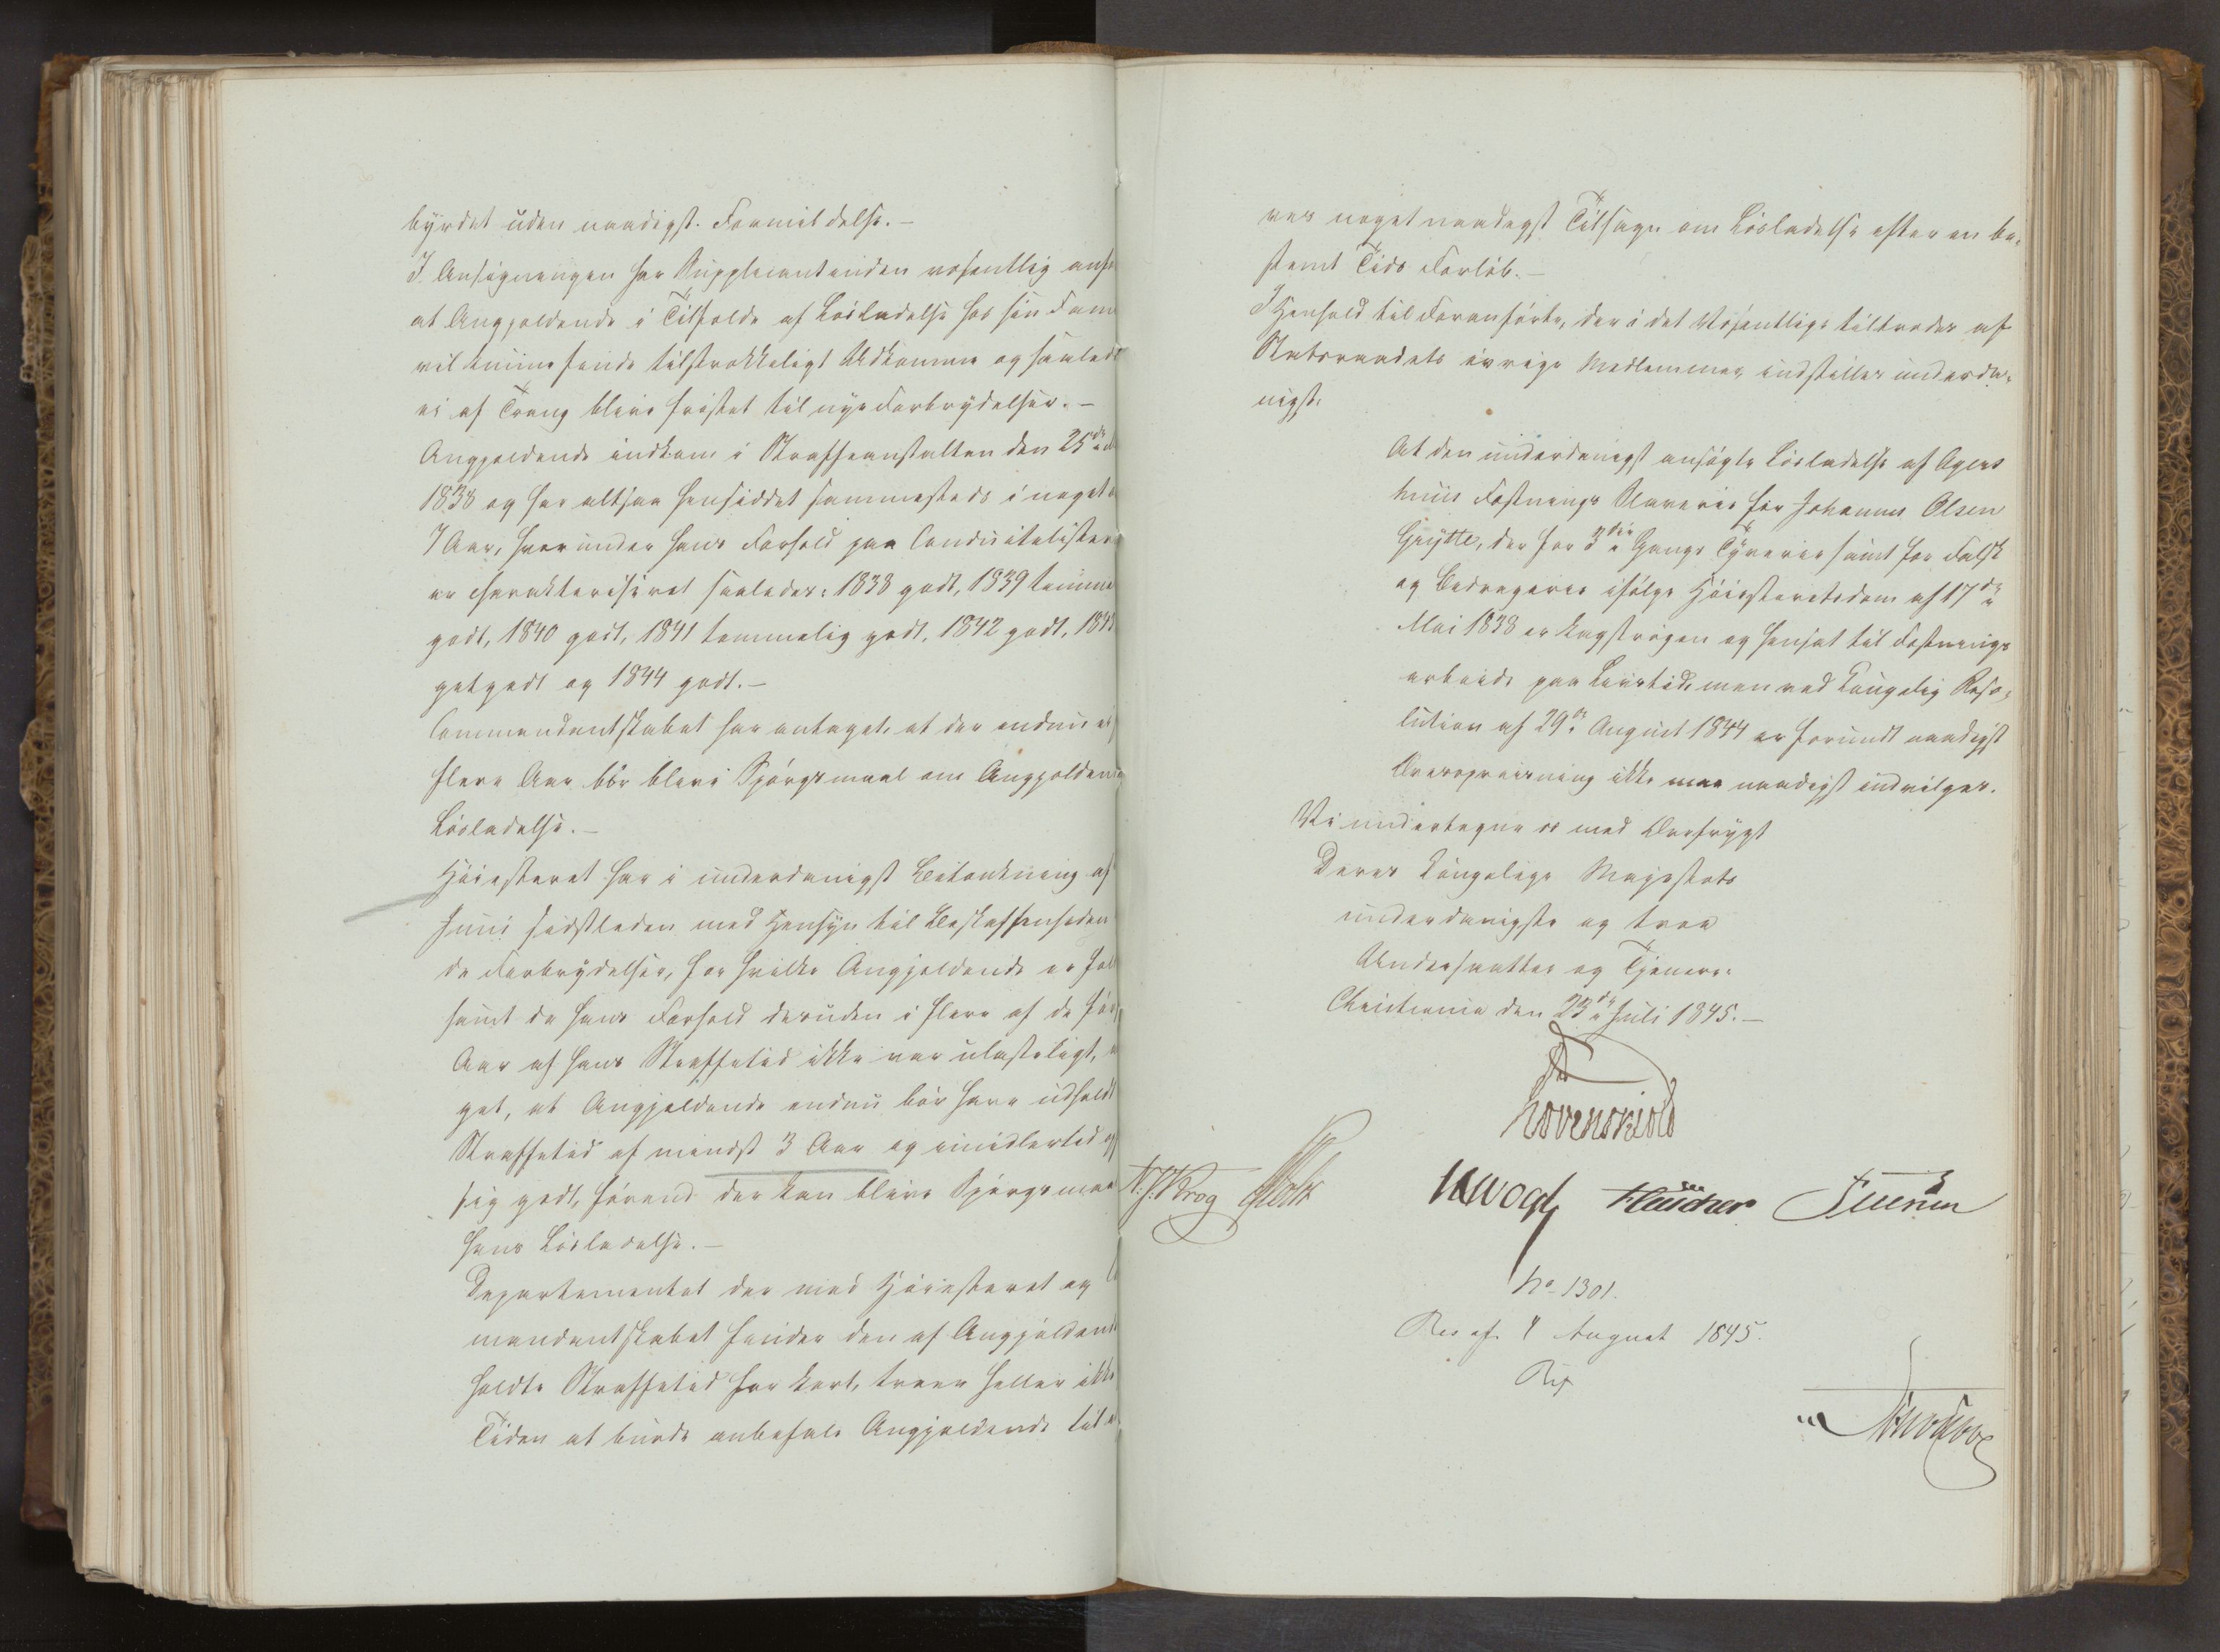 byrdet uden naadigst Formildelse.-
I Ansøgningen har Supplicantinden væsentlig anfø
at Angjeldende i Tilfælde af Løsladelse hos sin Fam
vil kunne finde tilstrækkeligt Udkomme og saaled
ei af Trang blive fristet til nye Forbrydelser.-
Angjeldende indkom i Straffeanstalten den 25de
1838 og har altsaa hensiddet sammesteds i noget o
7 Aar, hvorunder hans Forhold paa Conduitelister
er charakteriseret saaledes: 1838 godt, 1839 temme
godt, 1840 godt, 1841 temmelig godt, 1842 godt, 1843
godt og 1844 godt.-
Commandantskabet har antaget, at der endnu ei
flere Aar bør blive Spørgsmaal om Angjelden
Løsladelse.-
Høiesteret har i underdanigst Betænkning af
Juni sidstleden med Hensyn til Beskaffenheden
de Forbrydelser, for hvilke Angjeldende er fæl
samt da hans Forhold desuden i flere af de før
Aar af hans Straffetid ikke var ulasteligt,
get, at Angjeldende endnu bør have udholdt
Straffetid af mindst 3 Aar og imidlertid
sig godt, førend der kan blive Spørgsmaa
hans Løsladelse.-
Departementet der med Høiesteret og
mandantskabet finder den af Angjeldend
holdte Straffetid for kort, troer heller ikke
Tiden at burde anbefale Angjeldende til
ves noget naadigst Tilsagn om Løsladelse efter en be-
stemt Tids Forløb.-
I Henhold til Foranførte, der i det Væsentlige tiltrædes af
Statsraadets øvrige Medlemmer, indstilles underda-
nigst:
At den underdanigst ansøgte Løsladelse af Agers
huus Fæstnings Slaverie for Johannes Olsen
Grytte, der for 3die Gangs Tyverie samt for Falsk
og Bedragerie ifølge Høiesteretsdom af 17de
Mai 1838 er kagstrøgen og hensat til Fæstnings
arbeide paa Livstid, men ved Kongelig Reso-
lution af 29de August 1844 er forundt naadigst
Æresopreisning ikke maa naadigst indvilges.
Vi undertegne os med Ærefrygt
Deres Kongelige Majestæts
underdanigste og troe
Undersaatter og Tjenere.
Christiania den 23de Juli 1845.-
Løvenskiold
Krog Holst Vogt
No 1301.
Res af 4 August 1845.